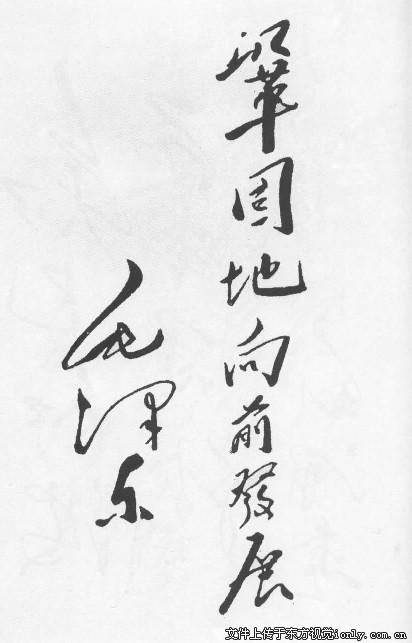 鞏固地向前發展
毛澤东
文件上传于东方视觉ionly.com.cn